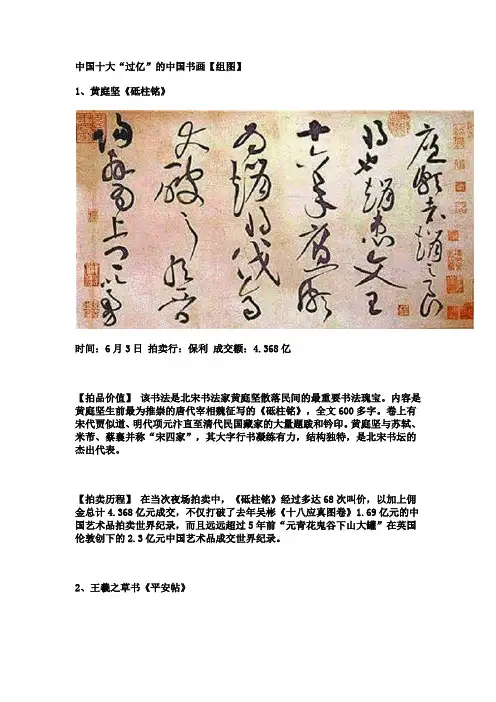 中国十大“过亿”的中国书画【组图】
1、黄庭坚《砥柱铭》
廉頗者趙之良
将也趙惠文王
十六年廉頗
為趙将伐齊
大破之取晉
陽拜為上卿以勇
时间：6月3日 拍卖行：保利 成交额：4.368亿
【拍品价值】 该书法是北宋书法家黄庭坚散落民间的最重要书法瑰宝。内容是
黄庭坚生前最为推崇的唐代宰相魏征写的《砥柱铭》，全文600多字。卷上有
宋代贾似道、明代项元汴直至清代民国藏家的大量题跋和钤印。黄庭坚与苏轼、
米芾、蔡襄并称“宋四家”，其大字行书凝练有力，结构独特，是北宋书坛的
杰出代表。
【拍卖历程】 在当次夜场拍卖中，《砥柱铭》经过多达68次叫价，以加上佣
金总计4.368亿元成交，不仅打破了去年吴彬《十八应真图卷》1.69亿元的中
国艺术品拍卖世界纪录，而且远远超过5年前“元青花鬼谷下山大罐”在英国
伦敦创下的2.3亿元中国艺术品成交世界纪录。
2、王羲之草书《平安帖》